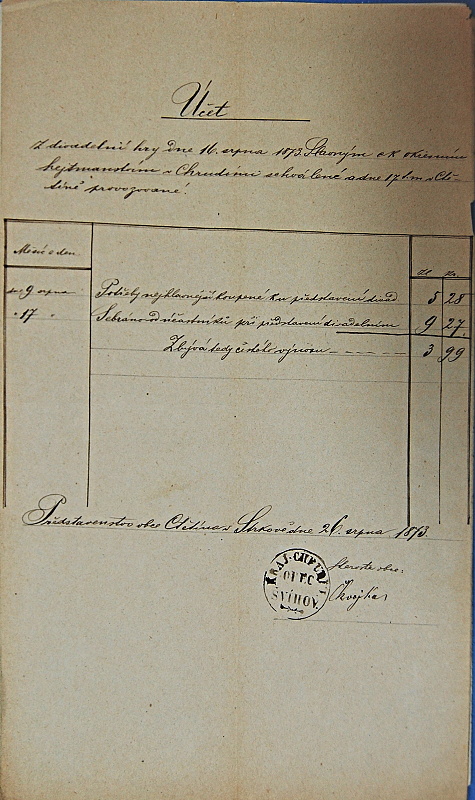 Účet
Z divadelní hry dne 16. srpna 1873. Slavným c k okresním
hejtmanstvím v Chrudimi schválené a dne 17 t. m. v Ctě-
tíně provozované.
Měsíc a den
zl kr.
9 srpna Potřeby nejhlavnější koupené ku představení divad 5 28
" 17 " Sebráno od účastníků při představení divadelním 9 27.
Zbývá tedy čistého výnosu - - - - - 3 99
Představenstvo obce Ctětína v Strkově dne 26. srpna 1873.
Starosta obce:
KRAJ. CHRUDI
OBEC
SVÍHOV.